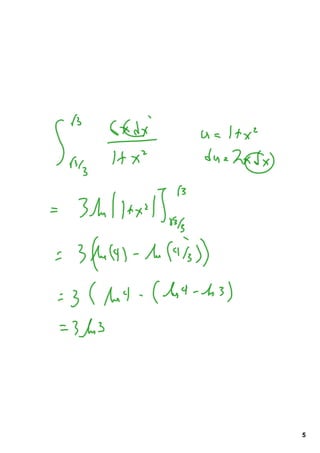 ∫_{√3/3}^{√3} 6xdx / 1+x²    u = 1+x²
du = 2xdx
= 3 ln|1+x²|]_{√3/3}^{√3}
= 3(ln(4) - ln(4/3))
= 3 ( ln4 - (ln4 - ln3)
= 3 ln3
5